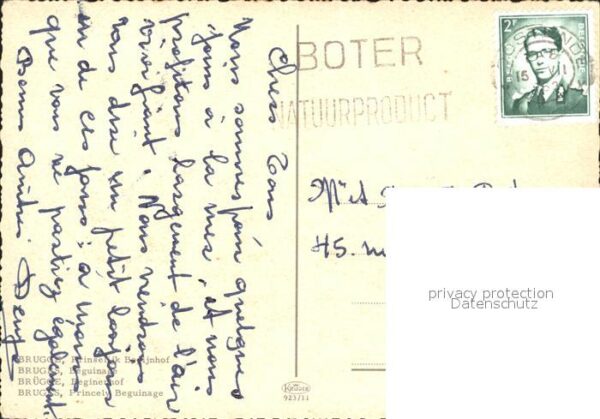 Chers Tous
Nous sommes pour quelques
jours à la mer, et nous
profitons largement de l'air
vivifiant. Nous viendrons
vous dire un petit bonjour
un de ces jours; à moins
que vous ne partiez également.
Bons Amitiés
BOTER
NATUURPRODUCT
2F
OOSTENDE
15
45.
privacy protection
Datenschutz
BRUGGE, Prinselijk Begijnhof
BRUGES, Béguinage
BRÜGGE, Beginenhof
BRUGES, Princely Beguinage
Krüger
923/31